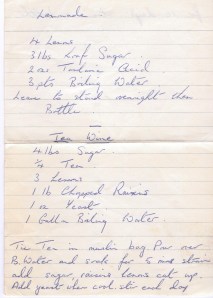 Lemonade.
4 Lemons
3 lbs. Loaf Sugar.
2 ozs Tartaric Acid
3 pts Boiling Water
Leave to stand overnight then
Bottle
Tea Wine
4 lbs Sugar
Tea
3 Lemons
1 lb Chopped Raisins
1 oz Yeast
1 Gallon Boiling Water
Tie Tea in muslin bag. Pour over
B. Water and soak for 5 mins stir
add sugar, raisins lemons cut up.
Add yeast when cool. stir each day